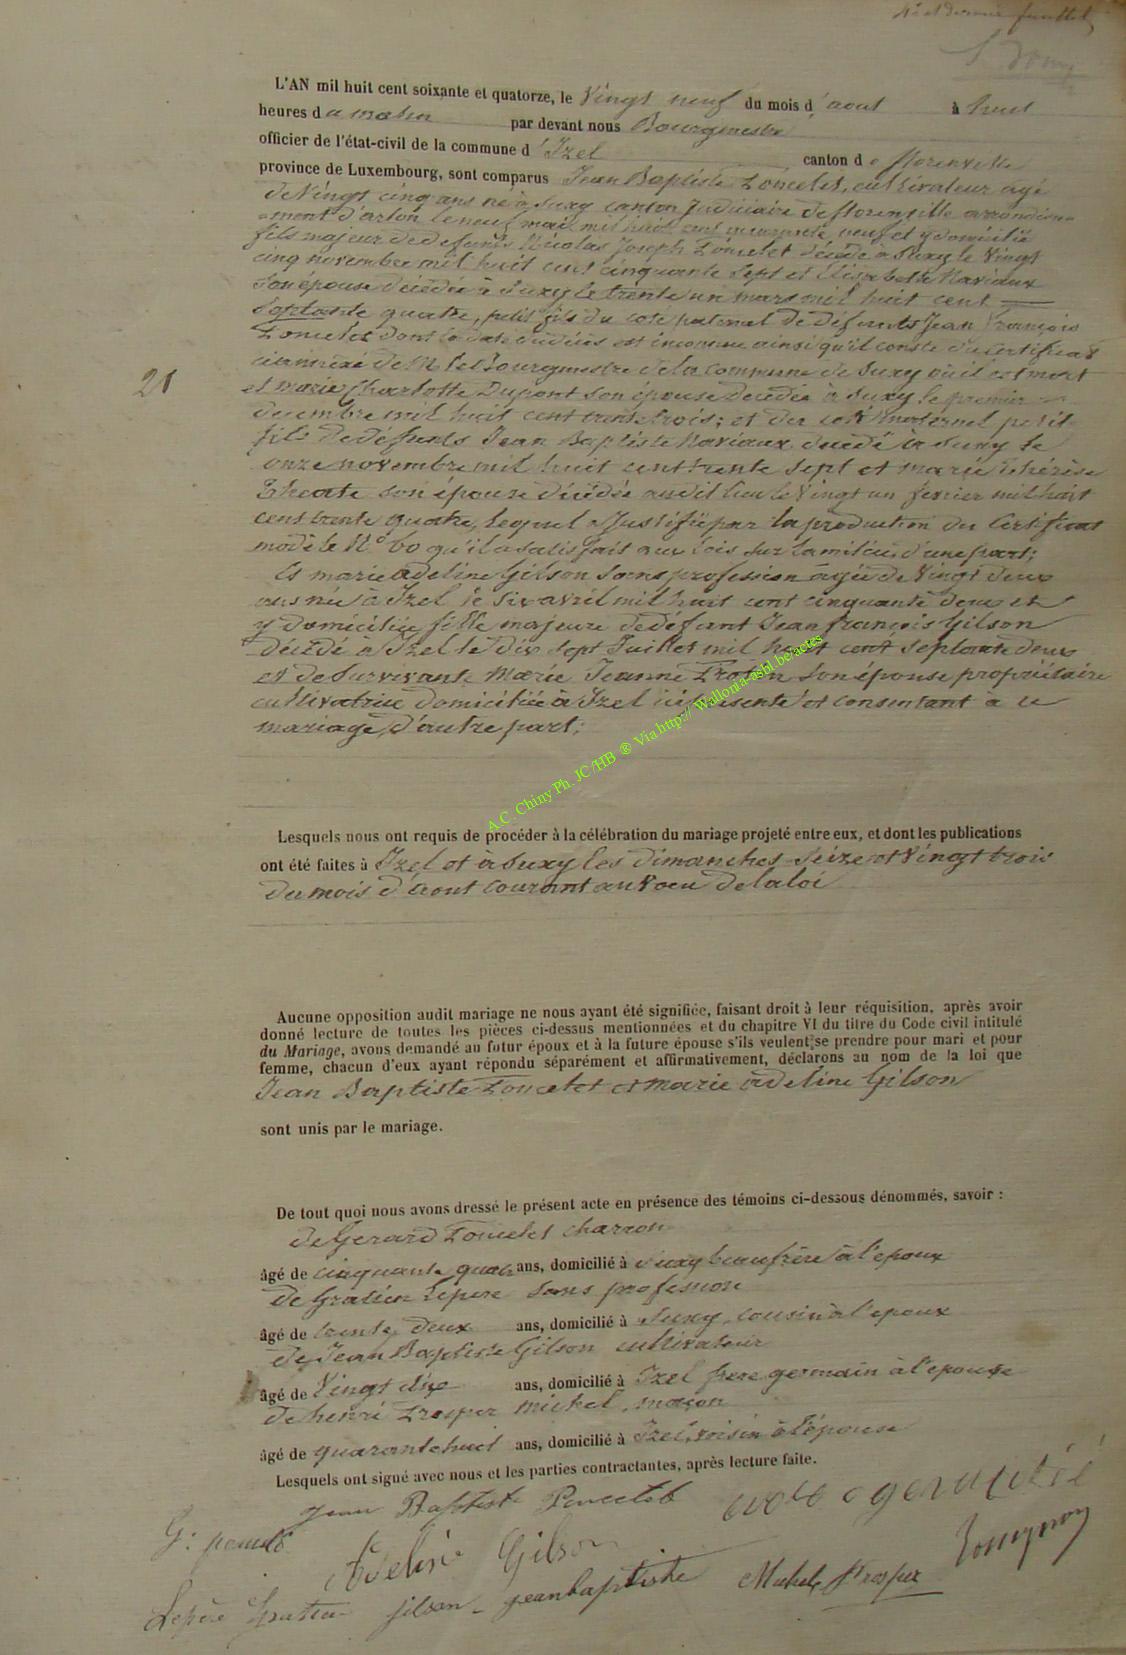 L'AN mil huit cent soixante et quatorze, le Vingt neuf du mois d'aout à huit
heures du matin par devant nous Bourgmestre
officier de l'état-civil de la commune d'Izel canton de florenville
province de Luxembourg, sont comparus Jean Baptiste Poncelet, cultivateur agé
de Vingt cinq ans né à Suxy canton Judiciaire de florenville arrondisse-
-ment d'arlon le neuf mai mil huit cent quarante neuf et y domicilié
fils majeur de defunts Nicolas Joseph Poncelet décédé à Suxy le Vingt
cinq novembre mil huit cent cinquante sept et Elisabeth Naviaux
son épouse décédée à Suxy le trente un mars mil huit cent
Septante quatre, petit fils du coté paternel de défunts Jean François
Poncelet dont la date du décès est inconnue ainsi qu'il conste du certificat
ci annexé de M le Bourgmestre de la commune de Suxy où il est mort
21
et marie Charlotte Dupont son épouse décédée à Suxy le premier
decembre mil huit cent trente trois; et du coté maternel petit
fils de défunts Jean Baptiste Naviaux décédé à Suxy le
onze novembre mil huit cent trente sept et marie thérèse
son épouse décédée audit lieu le Vingt un fevrier mil huit
cent trente quatre, lequel a Justifié par la production du Certificat
modèle N° 60 qu'il a satisfait aux lois sur la milice, d'une part;
Et marie adeline Gilson sans profession agée de Vingt deux
ans née à Izel le six avril mil huit cent cinquante deux et
y domiciliée fille majeure de défunt Jean françois Gilson
décédé à Izel le dix sept Juillet mil huit cent septante deux
et de Survivante Marie Jeanne son épouse propriétaire
cultivatrice domiciliée à Izel ici présente et consentant à ce
mariage, d'autre part;
A.C. Chiny Ph. JC/HB ® Via http:// Wallonia-asbl.be/actes
Lesquels nous ont requis de procéder à la célébration du mariage projeté entre eux, et dont les publications
ont été faites à Izel et à Suxy les dimanches Seize et Vingt trois
du mois d'aout courant au Voeu de la loi
Aucune opposition audit mariage ne nous ayant été signifiée, faisant droit à leur réquisition, après avoir
donné lecture de toutes les pièces ci-dessus mentionnées et du chapitre VI du titre du Code civil intitulé
du Mariage, avons demandé au futur époux et à la future épouse s'ils veulent se prendre pour mari et pour
femme, chacun d'eux ayant répondu séparément et affirmativement, déclarons au nom de la loi que
Jean Baptiste Poncelet et marie adeline Gilson
sont unis par le mariage.
De tout quoi nous avons dressé le présent acte en présence des témoins ci-dessous dénommés, savoir :
de Gerard Poncelet charron
âgé de cinquante quatre ans, domicilié à Suxy beau frère à l'epoux
de Gratien Lepere sans profession
âgé de trente deux ans, domicilié à Suxy, cousin à l'epoux
de Jean Baptiste Gilson cultivateur
âgé de Vingt dix ans, domicilié à Izel frere germain à l'epouse
de henri Prosper michel, maçon
âgé de quarante huit ans, domicilié à Izel, voisin à l'épouse
Lesquels ont signé avec nous et les parties contractantes, après lecture faite.
Jean Baptiste Poncelet
G:
Adeline Gilson
Lepère Gratien gilson jean baptiste Michel Prosper